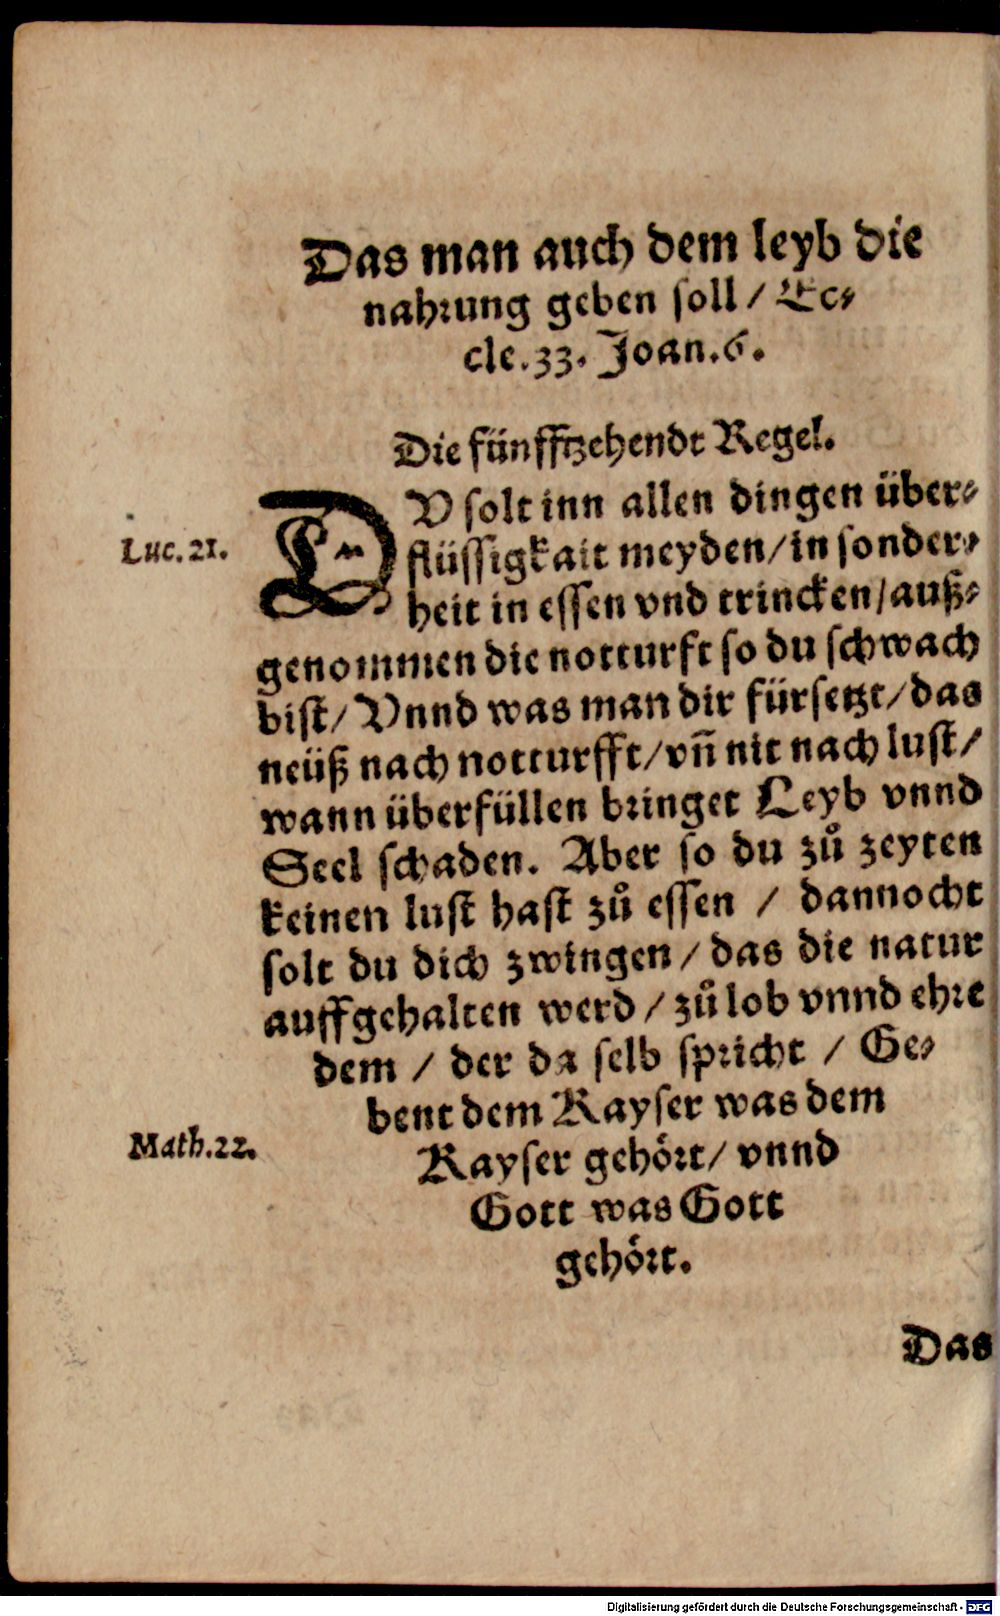 Das man auch dem leyb die
nahrung geben soll / Ec⸗
cle.33. Joan.6.
Die fünfftzehendt Regel.
DV solt inn allen dingen über⸗
Luc.21.
flüssigkait meyden/in sonder⸗
heit in essen vnd trincken/auß⸗
genommen die notturft so du schwach
bist/ Vnnd was man dir fürsetzt/das
neüß nach notturfft/vñ nit nach lust/
wann überfüllen bringet Leyb vnnd
Seel schaden. Aber so du zuͦ zeyten
keinen lust hast zuͦ essen / dannocht
solt du dich zwingen/das die natur
auffgehalten werd/zuͦ lob vnnd ehre
dem / der da selb spricht / Ge⸗
bent dem Kayser was dem
Math.22.
Kayser gehört/ vnnd
Gott was Gott
gehört.
Das
Digitalisierung gefördert durch die Deutsche Forschungsgemeinschaft - DFG